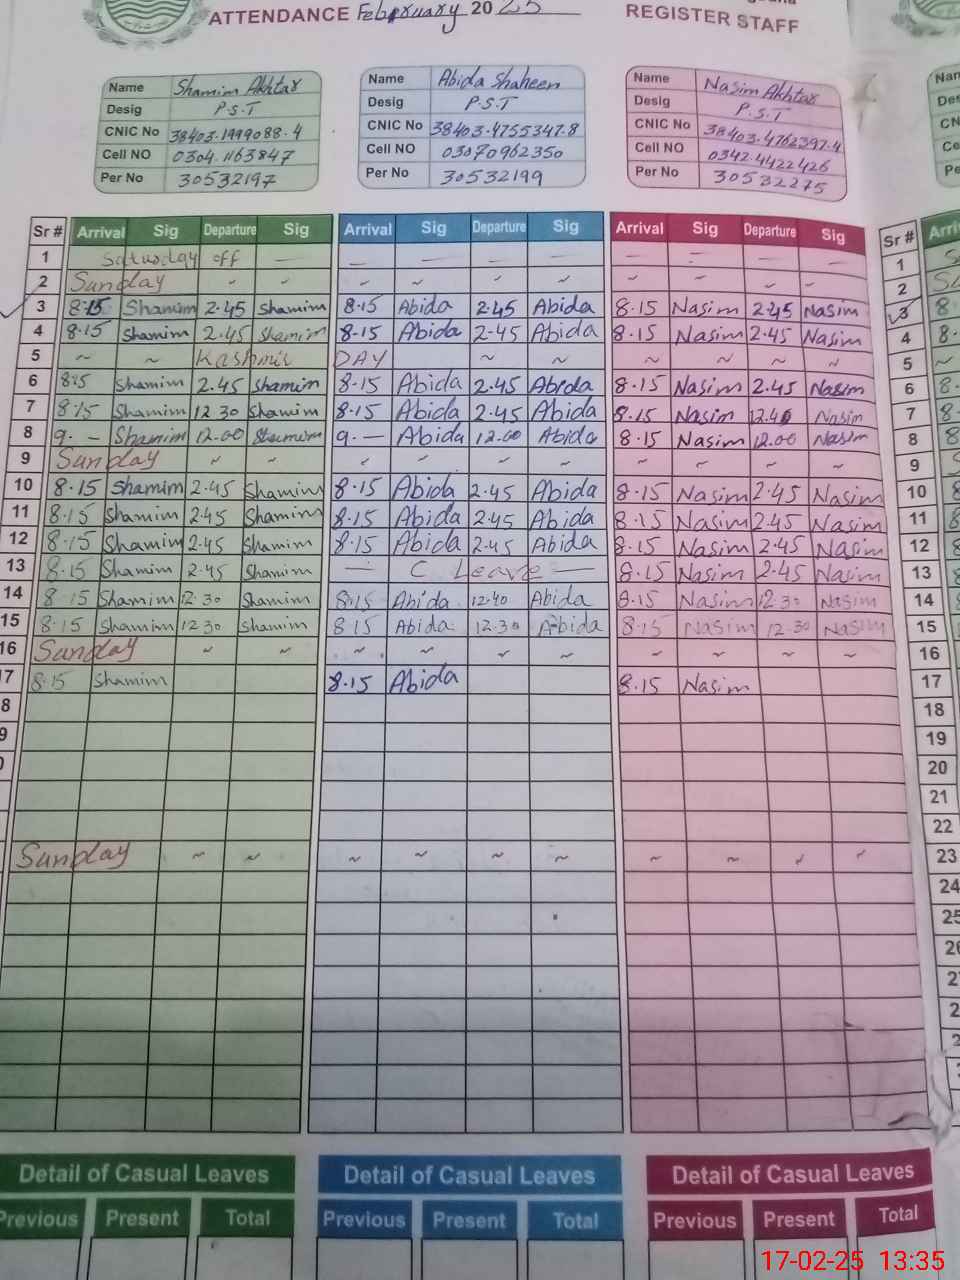 ATTENDANCE February 2025 REGISTER STAFF
Name Shamim Akhtar
Desig P.S.T
CNIC No 38403.1999088.4
Cell NO 0304.1163847
Per No 30532197
Name Abida Shaheen
Desig P.S.T
CNIC No 38403.4755347.8
Cell NO 03070962350
Per No 30532199
Name Nasim Akhtar
Desig P.S.T
CNIC No 38403.4762397.4
Cell NO 0342.4422426
Per No 30532275
Sr # Arrival Sig Departure Sig Arrival Sig Departure Sig Arrival Sig Departure Sig Sr #
1 Saturday off — — — — — — — — — 1
2 Sunday ~ ~ ~ ~ ~ ~ ~ ~ ~ ~ 2
3 8:15 Shamim 2.45 Shamim 8.15 Abida 2.45 Abida 8.15 Nasim 2.45 Nasim 3
4 8.15 Shamim 2.45 Shamim 8.15 Abida 2.45 Abida 8.15 Nasim 2.45 Nasim 4
5 ~ ~ Kashmir DAY ~ ~ ~ ~ ~ ~ 5
6 8:5 Shamim 2.45 Shamim 8.15 Abida 2.45 Abida 8.15 Nasim 2.45 Nasim 6
7 8.15 Shamim 12 30 Shamim 8.15 Abida 2.45 Abida 8.15 Nasim 12.40 Nasim 7
8 9. — Shamim 12.00 Shamim 9. — Abida 12.00 Abida 8.15 Nasim 12.00 Nasim 8
9 Sunday ~ ~ ~ ~ ~ ~ ~ ~ ~ ~ 9
10 8.15 Shamim 2.45 Shamim 8.15 Abida 2.45 Abida 8.15 Nasim 2.45 Nasim 10
11 8.15 Shamim 2.45 Shamim 8.15 Abida 2.45 Abida 8.15 Nasim 2.45 Nasim 11
12 8.15 Shamim 2.45 Shamim 8.15 Abida 2.45 Abida 8.15 Nasim 2.45 Nasim 12
13 8.15 Shamim 2.45 Shamim — C Leave — 8.15 Nasim 2.45 Nasim 13
14 8.15 Shamim 12.30 Shamim 8:15 Abida 12.40 Abida 8.15 Nasim 12.30 Nasim 14
15 8.15 Shamim 12 30 Shamim 8.15 Abida 12.30 Abida 8.15 Nasim 12.30 Nasim 15
16 Sunday ~ ~ ~ ~ ~ ~ ~ ~ ~ ~ 16
17 8.15 Shamim 8.15 Abida 8.15 Nasim 17
8 18
9 19
20
21
22
Sunday ~ ~ ~ ~ ~ ~ ~ ~ ~ ~ 23
24
25
Detail of Casual Leaves Detail of Casual Leaves Detail of Casual Leaves
Previous Present Total Previous Present Total Previous Present Total
17-02-25 13:35